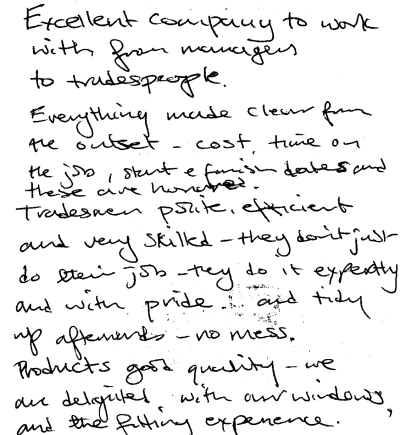 Excellent company to work
with from managers
to tradespeople.
Everything made clear from
the outset - cost, time on
the job, start & finish dates and
these are honored.
Tradesmen polite, efficient
and very skilled - they don't just
do their job - they do it expertly
and with pride. and tidy
up afterwards - no mess.
Products good quality - we
are delighted with our windows,
and the fitting experience.